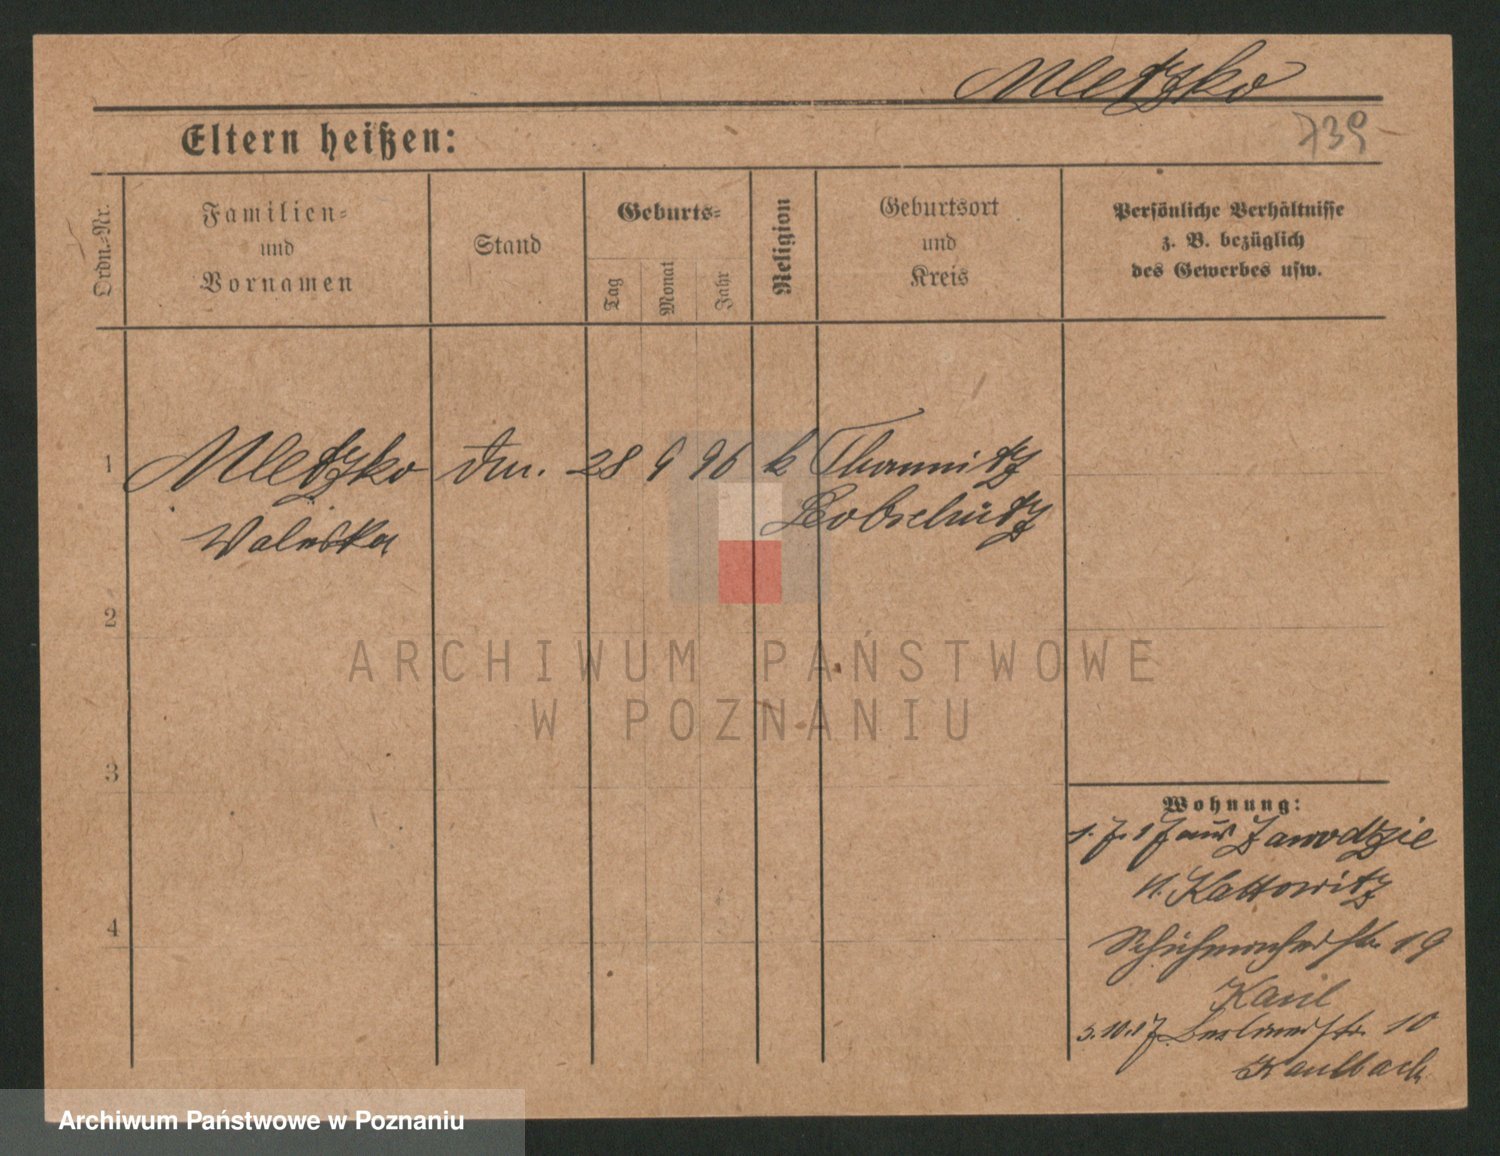 Mletzko
739
Eltern heißen:
Ordn.-Nr.
Familien-
und
Vornamen
Stand
Geburts-
Tag
Monat
Jahr
Religion
Geburtsort
und
Kreis
Persönliche Verhältnisse
z. B. bezüglich
des Gewerbes usw.
1 Mletzko 28 9 96 k Thomnitz
Waleska Leobschütz
2
3
4
Wohnung:
1. 7. 17 aus Zawodzie
Kattowitz
Schuhmacherstr. 19
Karil
3. 10. 17 Berlinerstr. 10
Kaulbach
ARCHIWUM PAŃSTWOWE
W POZNANIU
Archiwum Państwowe w Poznaniu